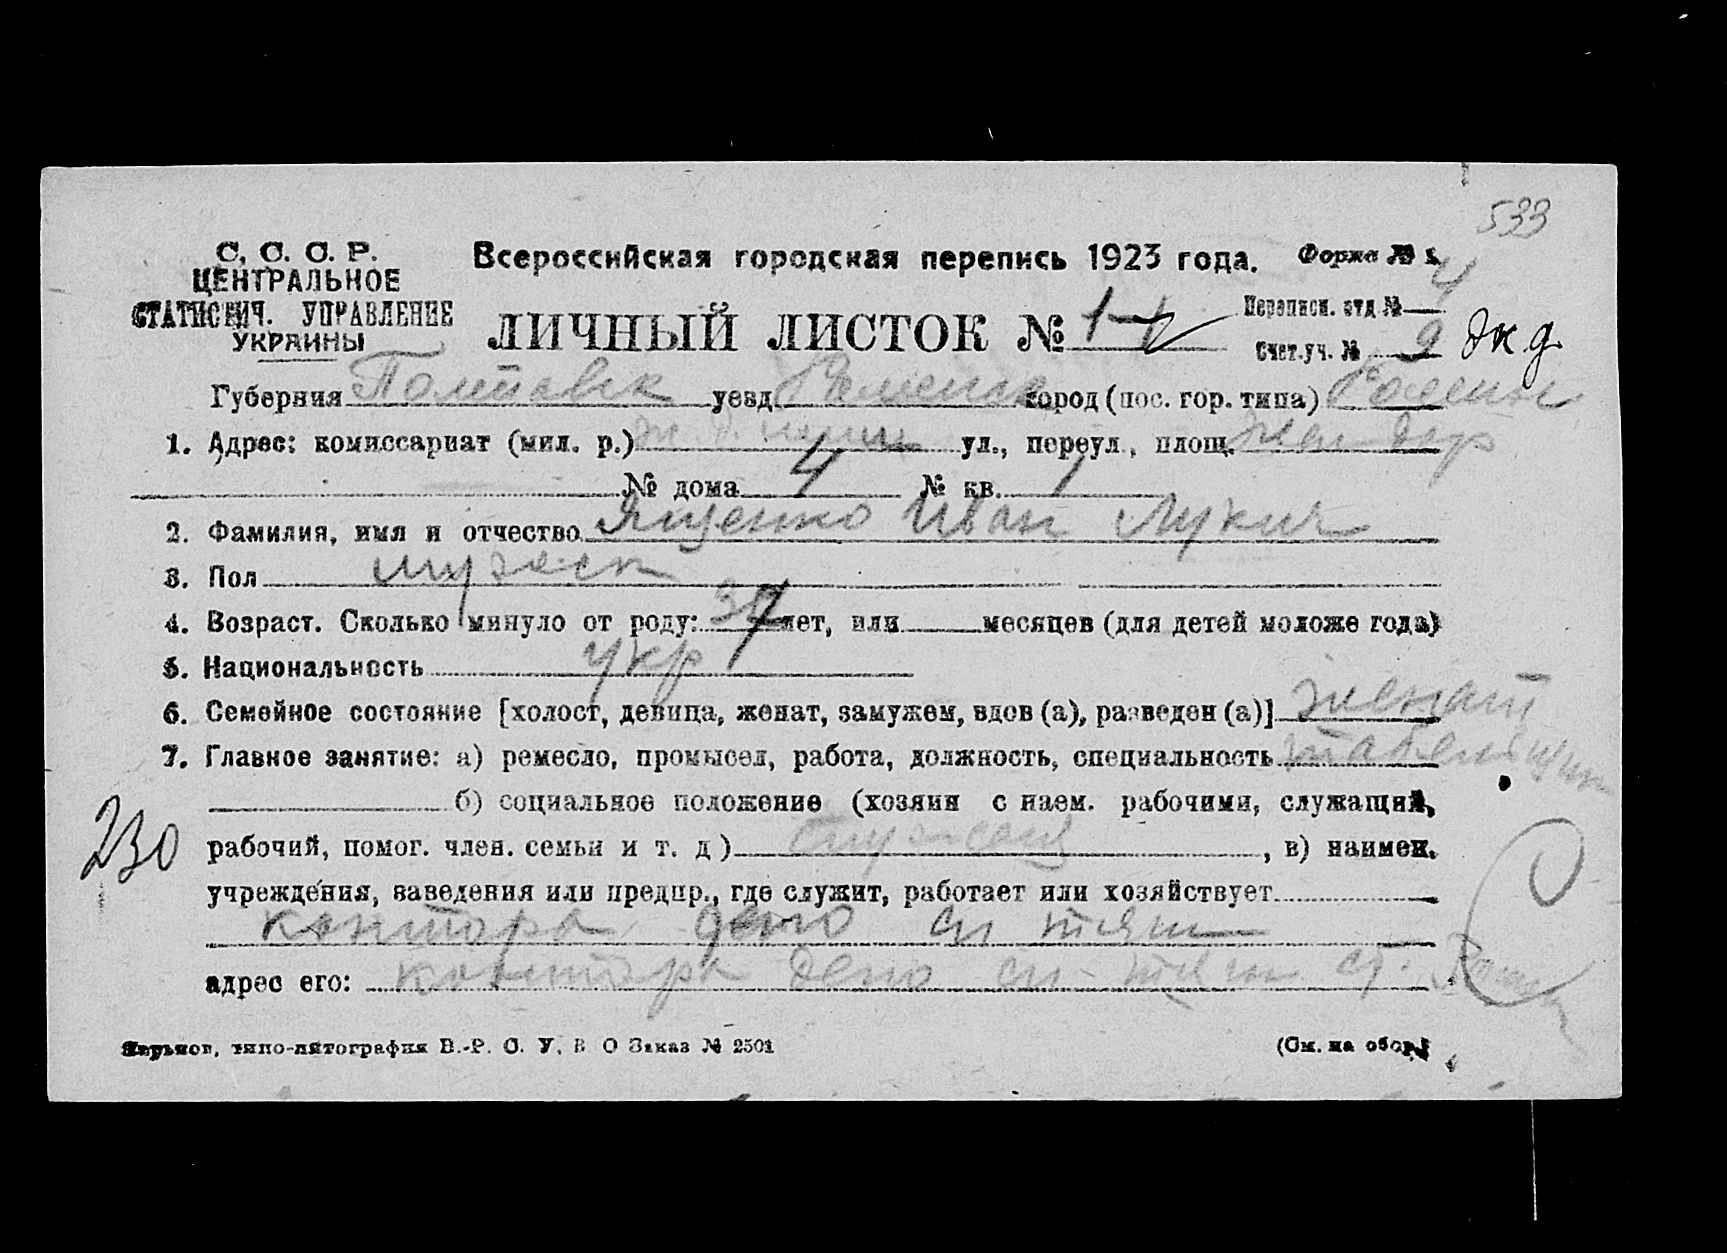 533
С. С. С. Р.
ЦЕНТРАЛЬНОЕ
СТАТИСТИЧ. УПРАВЛЕНИЕ
УКРАИНЫ
Всероссийская городская перепись 1923 года. Форма №
ЛИЧНЫЙ ЛИСТОК № 1-1
Переписн. отд. № 4
Счет.уч. № 9 жд
Губерния Полтавск уезд Роменск город (пос. гор. типа) Ромны
1. Адрес: комиссариат (мил. р.) ул., переул., площ.
№ дома 4 № кв. 1
2. Фамилия, имя и отчество Ященко Иван Лукич
3. Пол мужеск
4. Возраст. Сколько минуло от роду: 37 лет, или месяцев (для детей моложе года)
5. Национальность укр
6. Семейное состояние [холост, девица, женат, замужем, вдов (а), разведен (а)] женат
7. Главное занятие: а) ремесло, промысел, работа, должность, специальность табельщик
б) социальное положение (хозяин с наем. рабочими, служащий,
230
рабочий, помог. член. семьи и т. д ) служащ , в) наимен.
учреждения, заведения или предпр., где служит, работает или хозяйствует
контора депо сл тяги
адрес его: контора депо сл-тяги ст. Ромны
Харьков, типо-литография В.-Р. С. У. В. О Заказ № 2501
(См. на обор.)